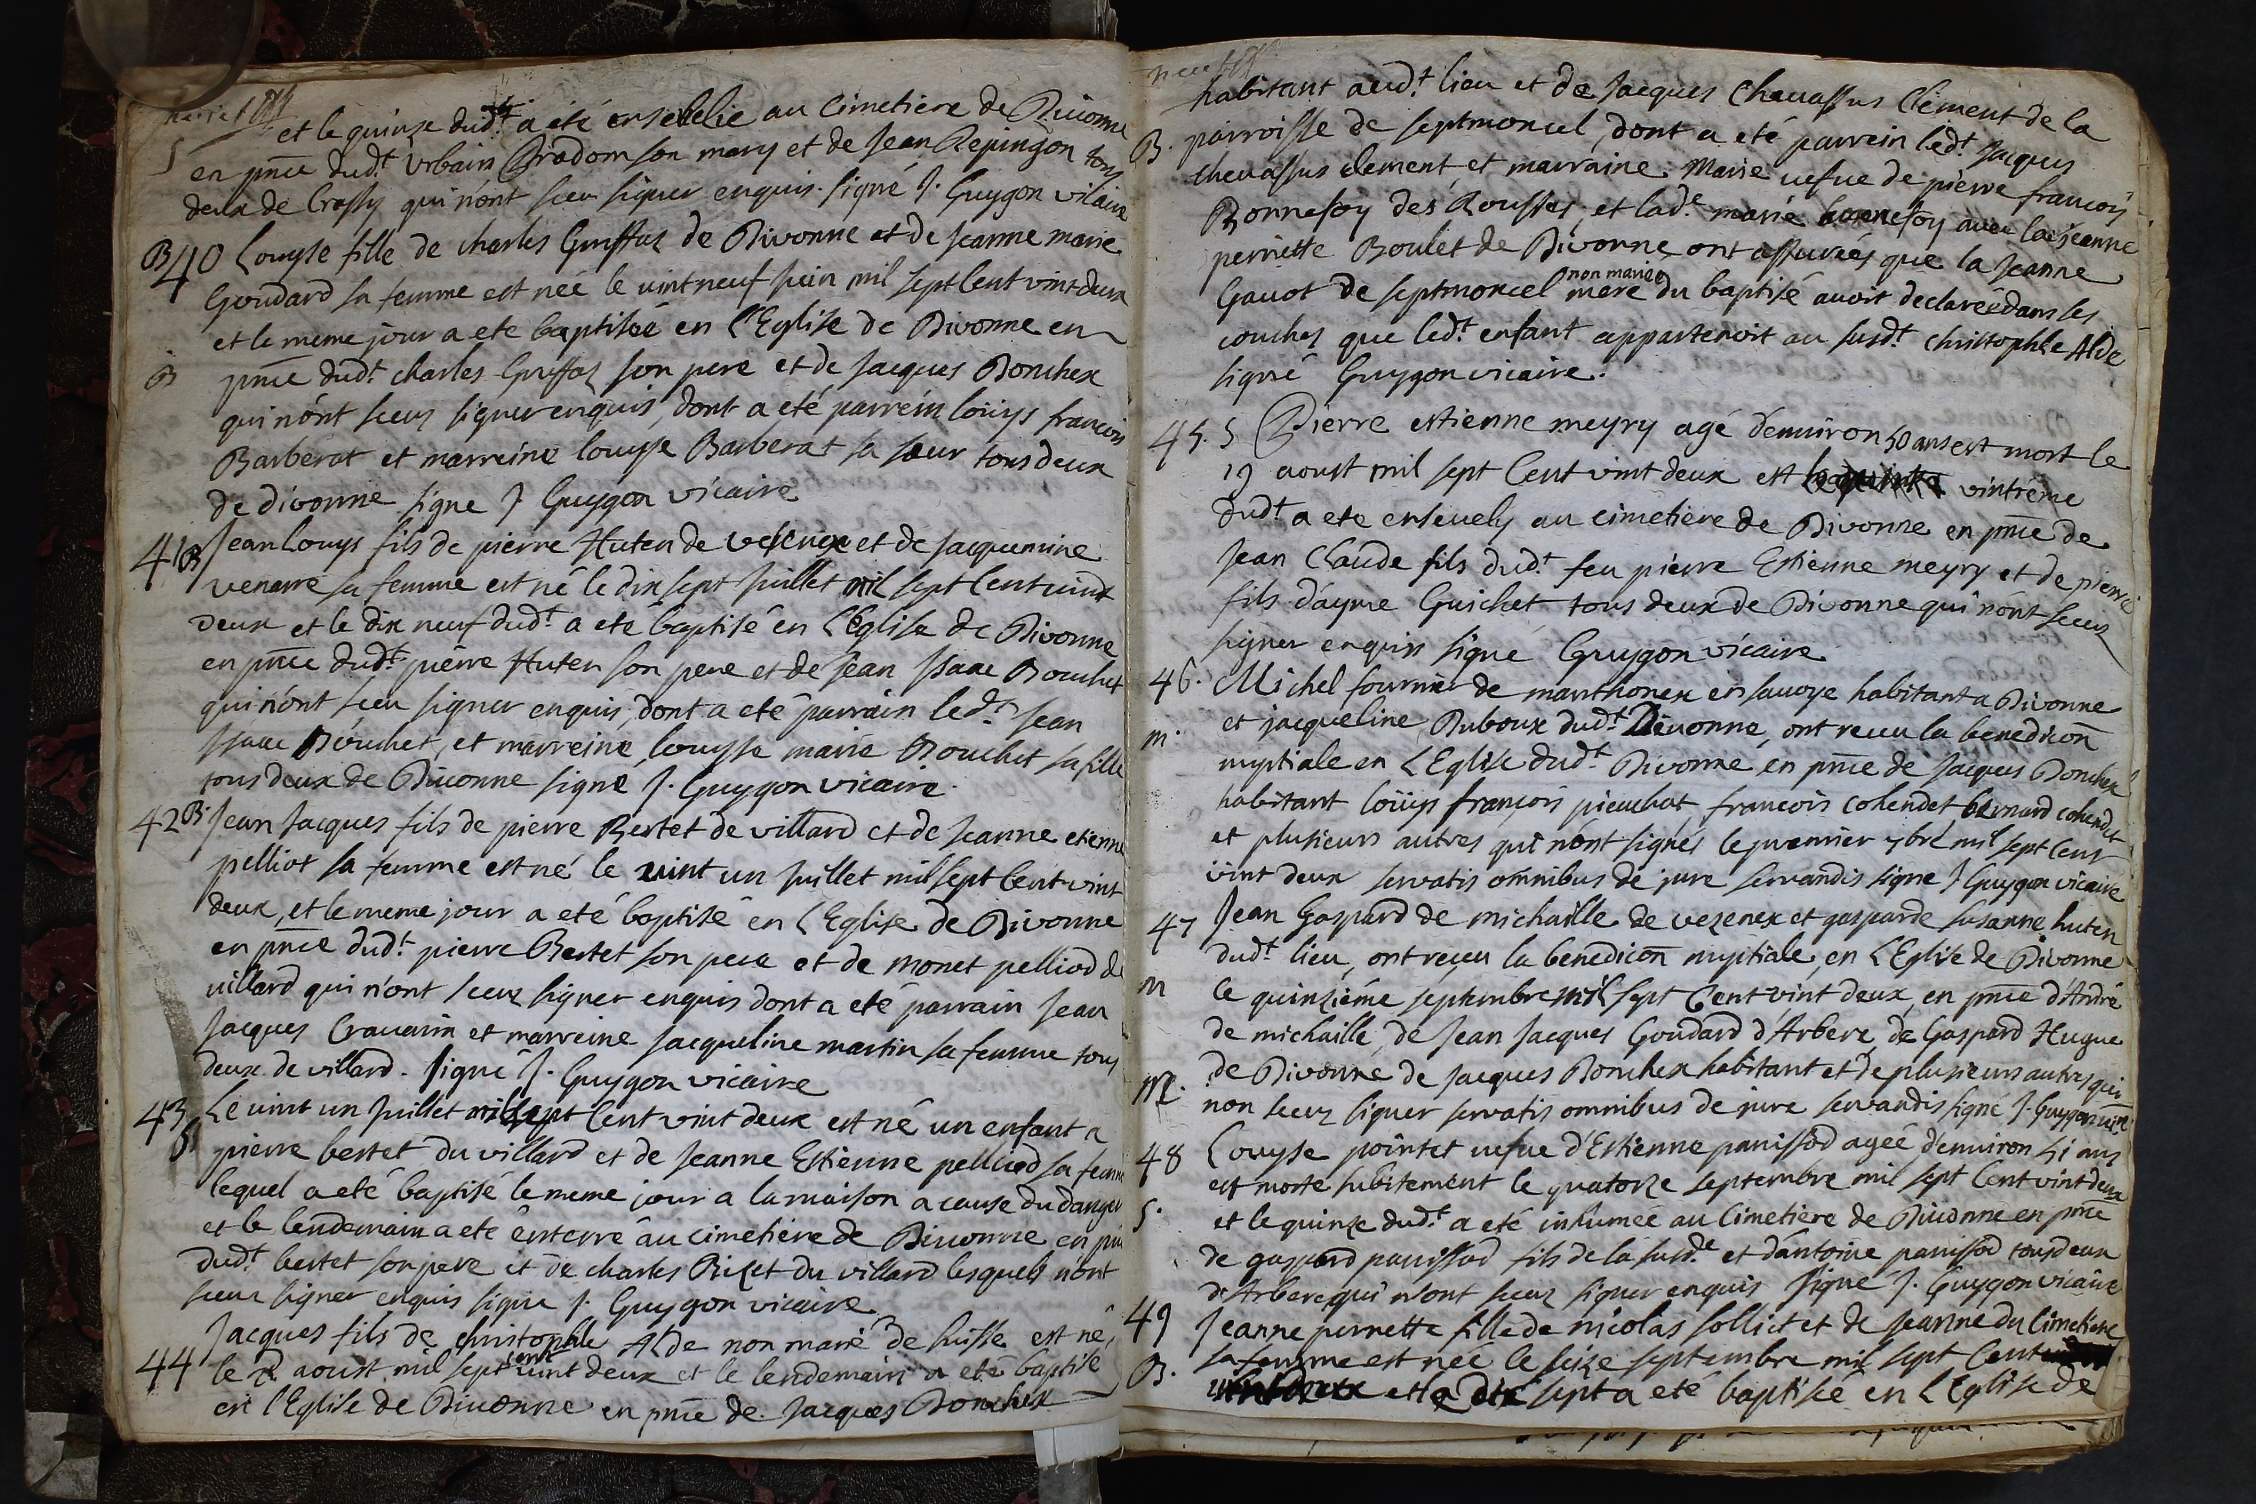 et le quinze dud.t a été ensebelie au Cimetiere de Divonne
S en pñce dud.t Urbain Bradom son mary et de Jean Repingon tous
deux de Crassy qui n'ont sceu signer enquis. signé J. Guygon vicaire
B 40 Louyse fille de charles Gruffaz de Divonne et de Jeanne marie
Goudard sa femme est née le vintneuf Juin mil sept Cent vint deux
et le meme jour a ete baptisée en l'Eglise de Divonne en
B pñce dud.t charles Gruffaz son pere et de Jacques Bonchex
qui n'ont sceuz signer enquis, dont a eté parrein louys françois
Barberat et marreine louyse Barberat sa sœur tous deux
de divonne signe J. Guygon vicaire
41 B Jean Louys fils de pierre Huten de vesenex et de Jacquemine
venarre sa femme est né le dix sept Juillet mil sept Cent vint
deux et le dix neuf dud.t a eté baptisé en L'Eglise de Divonne
en pñce dud.t pierre Huten son pere et de Jean Isaac Bouchet
qui n'ont sceu signer enquis, dont a eté parrain led.t Jean
Isaac Bouchet, et marreine, louyse marie Bouchet sa fille
tous deux de Divonne signe J. Guygon vicaire.
42 B Jean Jacques fils de pierre Bertet de villard et de Jeanne etienne
pelliot sa femme est né le vint un Juillet mil sept Cent vint
deux, et le meme jour a eté baptisé en L'Eglise de Divonne
en pñce dud.t pierre Bertet son pere et de monet pelliod de
villard qui n'ont sceuz signer enquis dont a eté parrain Jean
Jacques Cravarin et marreine Jacqueline martin sa femme tous
deux de villard. signé J. Guygon vicaire
43 Le vint un Juillet mil sept Cent vint deux est né un enfant a
S pierre bertet du villard et de Jeanne Estienne pelliod sa femme
lequel a eté baptisé le meme jour a la maison a cause du danger
et le lendemain a eté enterré au cimetiere de Divonne en pñ
dud.t bertet son pere et de charles Rizet du villard lesquels n'ont
sceuz signer enquis signe J. Guygon vicaire
Jacques fils de christophle Alde non marié de suisse est né
44 le 2 aoust mil sept cent vint deux et le lendemain a eté baptisé
en l'Eglise de Divonne en pñce de Jacques Bonchex
habitant aud.t lieu et de Jacques Chevassus Clement de la
B. parroisse de septmoncel, dont a eté parrein led.t Jacques
chevassus clement et marraine Marie vefue de pierre françois
Bonnefoy des Rousses, et lad.e marie bonnefoy avec la Jeanne
pernette Boulet de Divonne, ont assurées que la Jeanne
Gavot de septmoncel non mariée mere du baptisé avoit declarée dans ses
couches que led.t enfant appartenoit au susd.t christophle Alde
signé Guygon vicaire.
45. S Pierre estienne meyry agé d'environ 50 ans est mort le
19 aoust mil sept Cent vint deux et vintieme
dud.t a ete ensevely au cimetiere de Divonne en pñce de
Jean Claude fils dud.t feu pierre Estienne meyry et de pierre
fils d'ayme Guichet tous deux de Divonne qui n'ont sceuz
signer enquis signé Guygon vicaire
46. Michel fournier de manthonex en savoye habitant a Divonne
et jacqueline Duboux dud.t Divonne, ont receu la benedicon
m. nuptiale en L'Eglise dud.t Divonne en pñce de Jacques Bonchex
habitant louys françois picuchat, françois cohendet, bernard cohendet
et plusieurs autres qui n'ont signés le premier 7bre mil sept Cent
vint deux servatis omnibus de jure servandis signe J. Guygon vicaire
47 Jean Gaspard de michaille de vezenex et gasparde susanne huten
dud.t lieu, ont receu la benedicon nuptiale, en L'Eglise de Divonne
m Ce quinziéme septembre mil sept Cent vint deux, en pñce d'André
de michaille, de Jean Jacques Goudard d'Arbere, de Gaspard Hugue
M. de Divonne de Jacques Bonchex habitant et de plusieurs autres qui
non sceuz signer servatis omnibus de jure servandis signé J. Guygon vic.re
48 Louyse pointet vefue d'Estienne panissod agée d'environ 51 ans
est morte subitement le quatorze septembre mil sept Cent vint deux
S. et le quinze dud.t a eté inhumée au Cimetiere de Divonne en pñce
de gaspard panissod fils de la susd.e et d'antoine panissod tous deux
d'Arbere qui n'ont sceuz signer enquis signé J. Guygon vicaire
49 Jeanne pernette fille de nicolas solliet et de Jeanne du Cimetiere
B. sa femme est née le seize septembre mil sept Cent
vint deux et le dix sept a eté baptisée en L'Eglise de